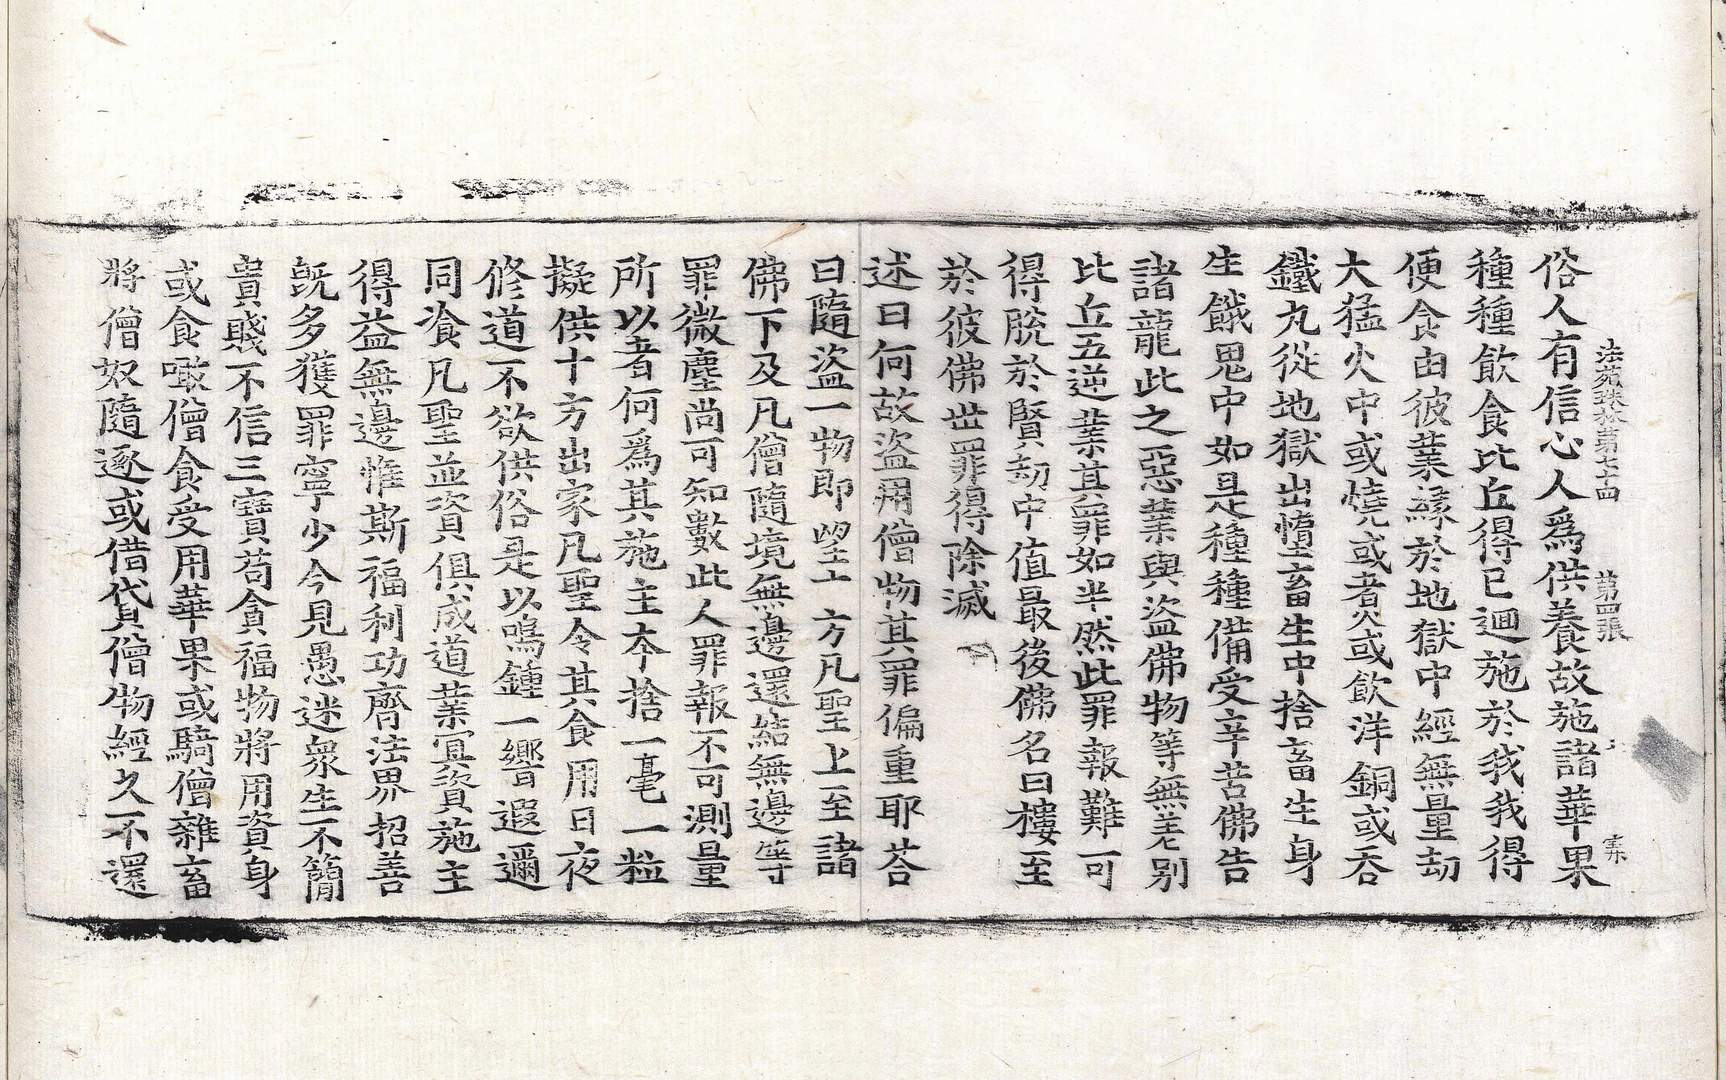 法苑珠林第七十四 第四張
俗人有信心人爲供養故施諸華果
種種飲食比丘得已迴施於我我得
便食由彼業緣於地獄中經無量劫
大猛火中或燒或煮或飲洋銅或吞
鐵丸從地獄出墮畜生中捨畜生身
生餓鬼中如是種種備受辛苦佛告
諸龍此之惡業與盜佛物等無差别
比丘五逆業其罪如半然此罪報難可
得脫於賢劫中值最後佛名曰樓至
於彼佛世罪得除滅
述曰何故盜用僧物其罪偏重耶荅
曰隨盜一物即望十方凡聖上至諸
佛下及凡僧隨境無邊還結無邊等
罪微塵尚可知數此人罪報不可測量
所以者何爲其施主本捨一毫一粒
擬供十方出家凡聖令其食用日夜
修道不欲供俗是以鳴鍾一響遐邇
同飡凡聖並資俱成道業冝資施主
得益無邊惟斯福利功齊法界招善
旣多獲罪寧少今見愚迷衆生不簡
貴賤不信三寶苟貪福物將用資身
或食噉僧食受用華果或騎僧雜畜
將僧奴隨逐或借貸僧物經久不還